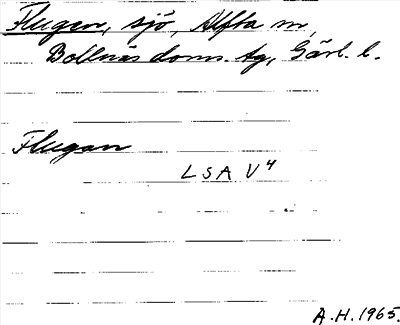 Flugen, sjö, Alfta sn,
Bollnäs doms. tg, Gävl. l.
Flugan
LSA V⁴
A.H. 1965.